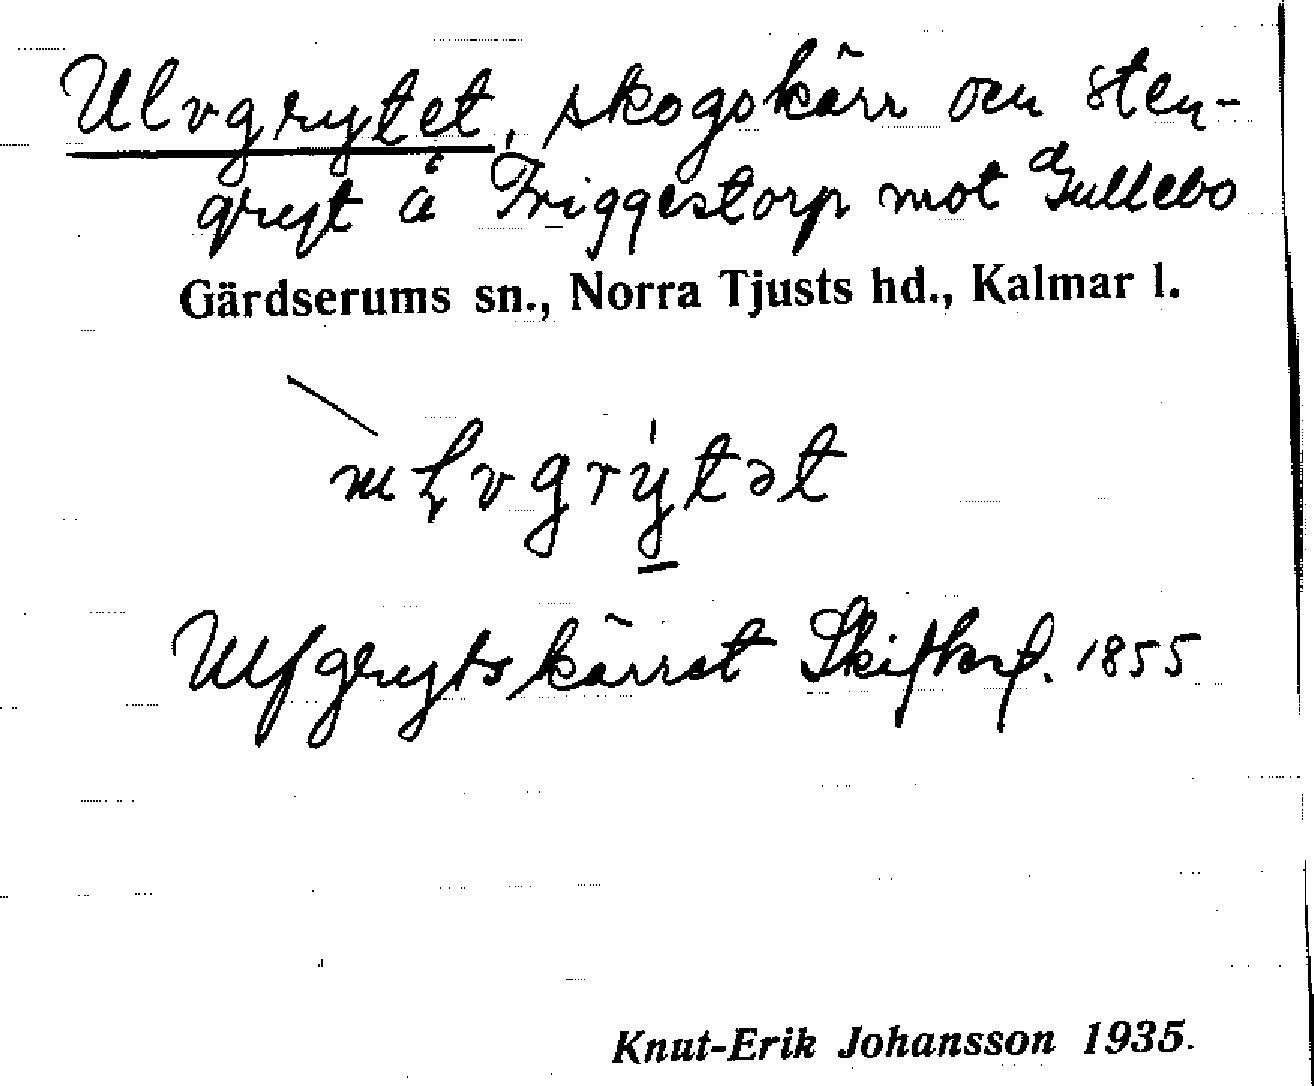 Ulvgrytet, skogskärr ocn sten-
gryt å Friggestorp mot Gullebo
Gärdserums sn., Norra Tjusts hd., Kalmar l.
Ulfgrytskärret Skifteskf. 1855
Knut-Erik Johansson 1935.